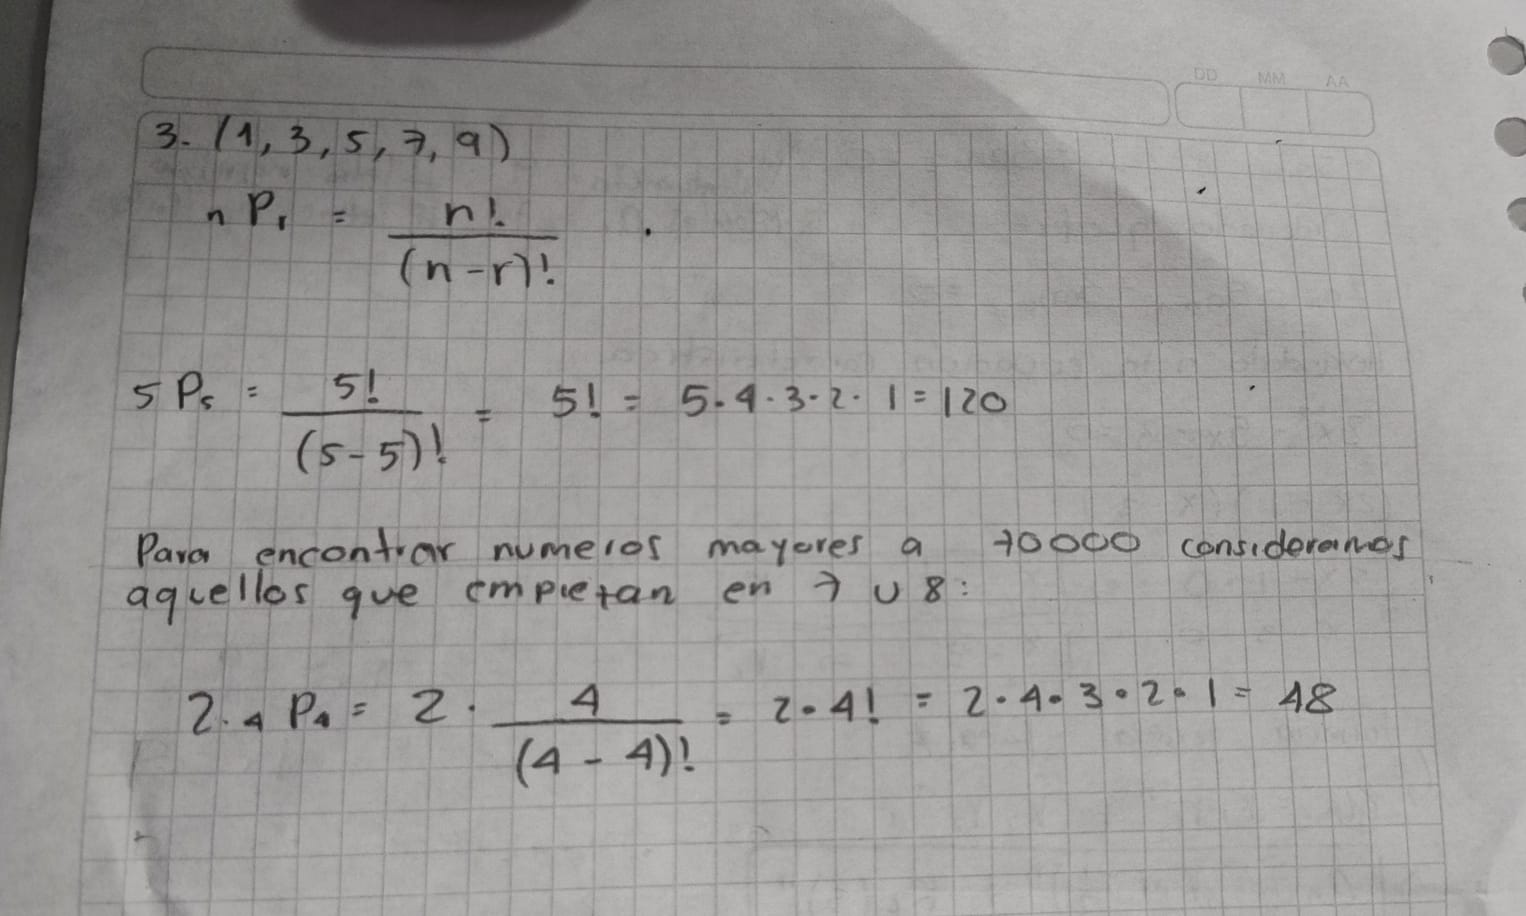 DD MM AA
3. (1, 3, 5, 7, 9)
n Pr = n! / (n-r)!
5 P5 = 5! / (5-5)! = 5! = 5.4.3.2.1 = 120
Para encontrar numeros mayores a 70000 consideramos
aquellos que empiezan en 7 u 8:
2. 4 P4 = 2. 4 / (4-4)! = 2.4! = 2.4.3.2.1 = 48